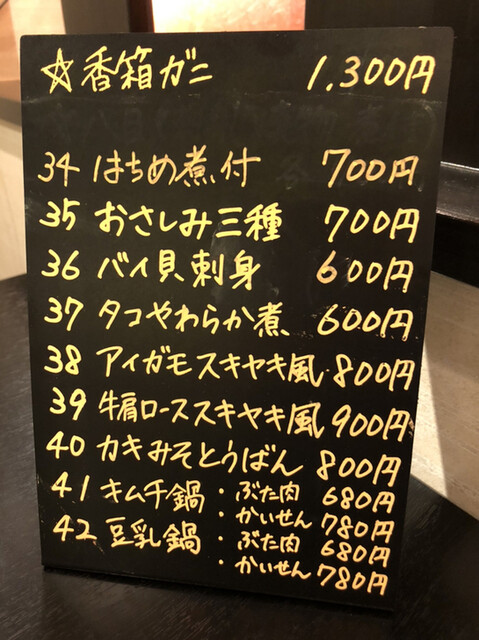 ☆香箱ガニ 1,300円
34 はちめ煮付 700円
35 おさしみ三種 700円
36 バイ貝刺身 600円
37 タコやわらか煮 600円
38 アイガモスキヤキ風 800円
39 牛肩ローススキヤキ風 900円
40 カキみそとうばん 800円
41 キムチ鍋・ぶた肉 680円
・かいせん 780円
42 豆乳鍋・ぶた肉 680円
・かいせん 780円